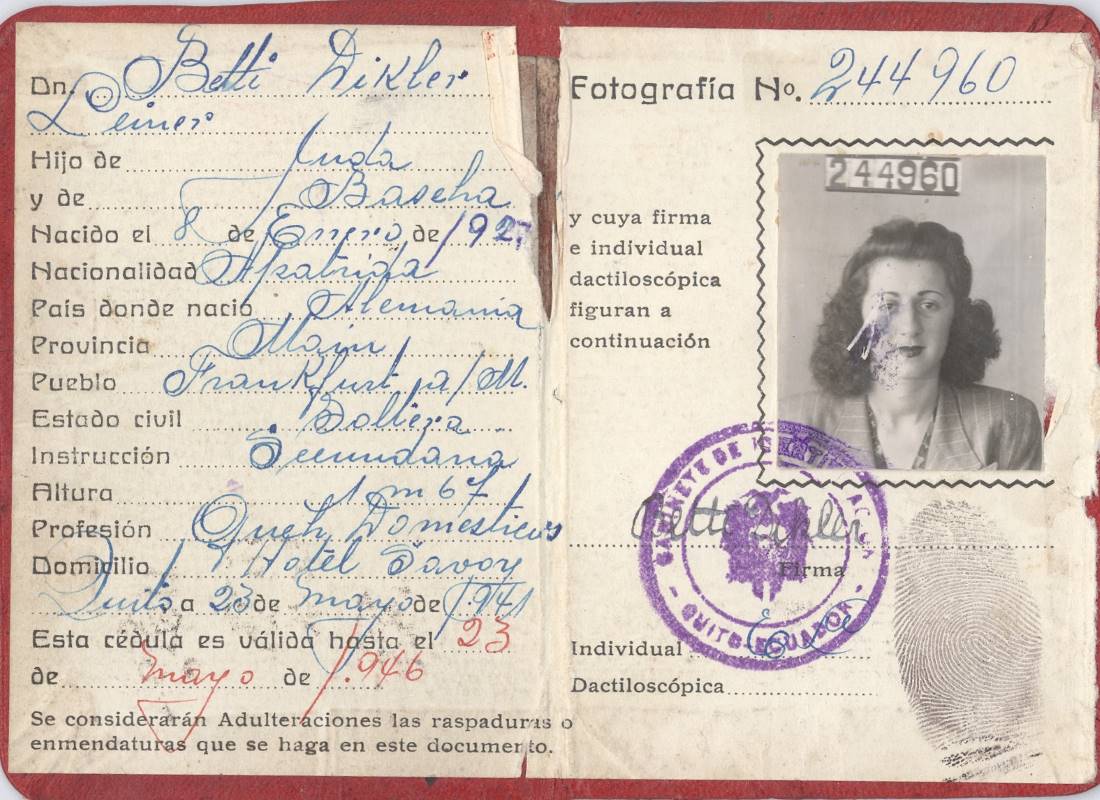 Dn. Betti Dikler
Leiner
Hijo de Juda
y de Bascha
Nacido el 8 de Enero de 1927
Nacionalidad Apatrida
País donde nació Alemania
Provincia Main
Pueblo Frankfurt a/M.
Estado civil Soltera
Instrucción Secundaria
Altura 1 m 67
Profesión Queh. Domésticos
Domicilio Hotel Savoy
Quito a 23 de mayo de 1.941
Esta cédula es válida hasta el 23
de mayo de 1.946
Se considerarán Adulteraciones las raspaduras o
enmendaturas que se haga en este documento.
Fotografía No. 244960
244960
y cuya firma
e individual
dactiloscópica
figuran a
continuación
GABINETE DE IDENTIFICACION
- QUITO-ECUADOR -
Betti Dikler
Firma
Individual
Dactiloscópica